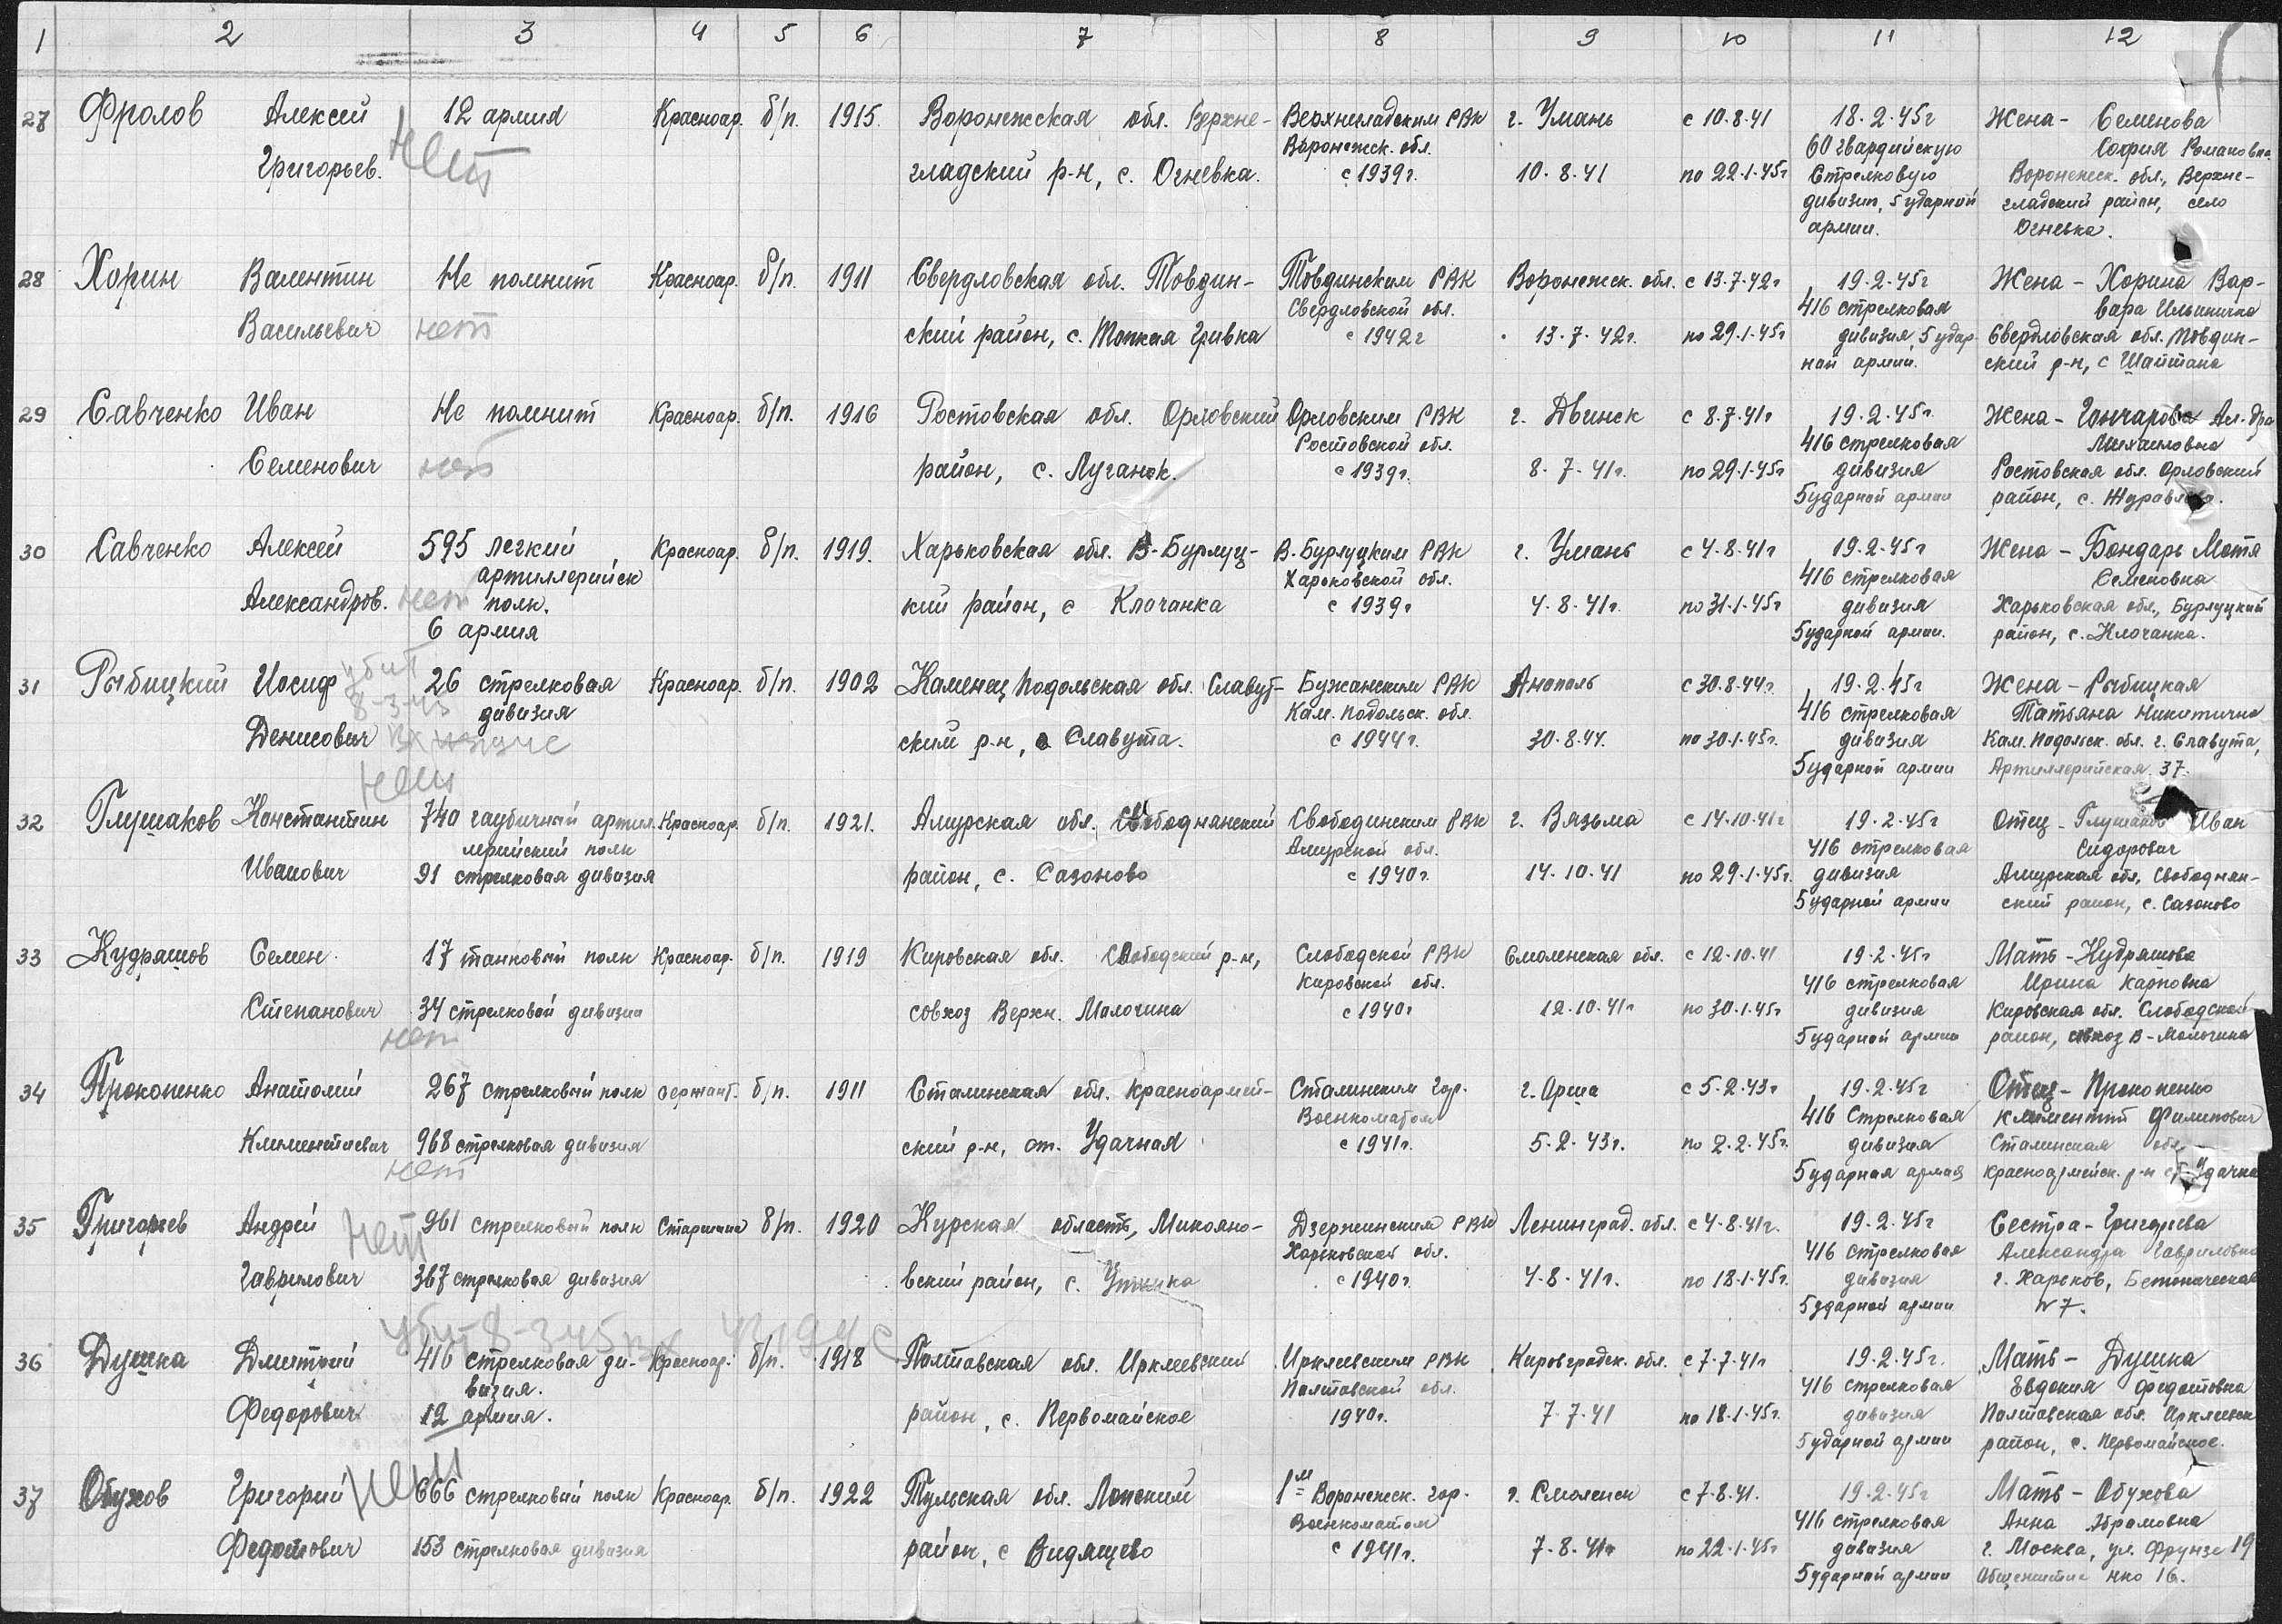 1 2 3 4 5 6 7 8 9 10 11 12
27 Фролов Алексей 12 армия Красноар. б/п. 1915. Воронежская обл. Верхне- Верхнегладским РВК г. Умань с 10.8.41 18.2.45г Жена - Семенова
нет
Воронежск. обл. 60 гвардейскую София Романовна
Григорьев. гладский р-н, с. Огневка. с 1939г. 10.8.41 по 22.1.45г Стрелковую Воронежск. обл., Верхне-
дивизию, 5 ударной гладский район, село
армии. Огневка.
28 Хорин Валентин Не помнит Красноар. б/п. 1911 Свердловская обл. Товдин- Товдинским РВК Воронежск. обл. с 13.7.42г 19.2.45г Жена - Хорина Вар-
Свердловской обл. 416 стрелковая вара Ильинична
Васильевич нет ский район, с. Тонкая Гривка с 1942г 13.7.42г. по 29.1.45г дивизия, 5 удар- Свердловская обл. Товдин-
ной армии. ский р-н, с Шайтана
29 Савченко Иван Не помнит Красноар. б/п. 1916 Ростовская обл. Орловский Орловским РВК г. Двинск с 8.7.41г 19.2.45г. Жена - Гончарова Ал-дра
Ростовской обл. 416 стрелковая Михаиловна
Семенович нет район, с. Луганск. с 1939г. 8.7.41г. по 29.1.45г дивизия Ростовская обл. Орловский
5 ударной армии район, с.
30 Савченко Алексей 595 легкий Красноар. б/п. 1919. Харьковская обл. В-Бурлуц- В-Бурлуцким РВК г. Умань с 4.8.41г 19.2.45г Жена - Бондарь Мотя
артиллерийск Харьковской обл. 416 стрелковая Семеновна
Александров. нет полк. кий район, с Клочанка с 1939г 4.8.41г. по 31.1.45г дивизия Харьковская обл., Бурлуцкий
6 армия 5 ударной армии. район, с. Клочанка.
31 Рыбицкий Иосиф убит 26 стрелковая Красноар. б/п. 1902 Каменец Подольская обл. Славут- Бужанским РВК Анополь с 30.8.44г. 19.2.45г Жена - Рыбицкая
8-3-45 дивизия Кам. Подольск. обл. 416 стрелковая Татьяна Никитична
Денисович ским р-н, с Славута. с 1944г. 30.8.44. по 30.1.45г. дивизия Кам. Подольск. обл. г. Славута,
нет 5 ударной армии Артиллерийская 37.
32 Глушаков Константин 740 гаубичный артил Красноар. б/п. 1921. Амурская обл. Свободнянский Свободинским РВК г. Вязьма с 14.10.41г 19.2.45г Отец - Глушаков Иван
лерийский полк Амурской обл. 416 стрелковая Сидорович
Иванович 91 стрелковая дивизия район, с. Сазоново с 1940г. 14.10.41 по 29.1.45г. дивизия Амурская обл, Свободнян-
5 ударной армии ский район, с. Сазоново
33 Кудрашов Семен 17 танковый полк Красноар. б/п. 1919 Кировская обл. Слободский р-н, Слободской РВК Смоленская обл. с 12.10.41 19.2.45г Мать - Кудряшова
Кировской обл. 416 стрелковая Ирина Карповна
Степанович 34 стрелковой дивизии совхоз Верхн. Малочина с 1940г 12.10.41г по 30.1.45г дивизия Кировская обл. Слободской
нет 5 ударной армии район, совхоз В-Малочина
34 Прокопенко Анатолий 267 стрелковый полк сержант. б/п. 1911 Сталинская обл. Красноармей- Сталинским Гор. г. Орша с 5.2.43г 19.2.45г Отец - Прокопенко
Военкоматом 416 стрелковая Климентий Филипович
Климентиевич 968 стрелковая дивизия ский р-н, ст. Удачная с 1941г. 5.2.43г. по 2.2.45г. дивизия Сталинская обл.
нет 5 ударная армия Красноармейск. р-н ст. Удачна
35 Григорьев Андрей нет 961 стрелковый полк Старшина б/п. 1920 Курская область, Микояно- Дзержинским РВК Ленинград. обл. с 4.8.41г. 19.2.45г Сестра - Григорьева
Харьковской обл. 416 стрелковая Александра Гавриловна
Гаврилович 367 стрелковая дивизия вский район, с. с 1940г. 4.8.41г. по 18.1.45г. дивизия г. Харьков, Ботаническая
5 ударной армии N 7.
убит 8-3-45
36 Душка Дмитрий 416 стрелковая ди- Красноар. б/п. 1918 Полтавская обл. Ирклеевский Ирклиевским РВК Кировградск. обл. с 7.7.41г 19.2.45г. Мать - Душка
визия. Полтавской обл. 416 стрелковая Евдокия Федотовна
Федорович 12 армия. район, с. Первомайское 1940г. 7.7.41 по 18.1.45г. дивизия Полтавская обл. Ирклиевск
5 ударной армии район, с. Первомайское.
37 Обухов Григорий нет 666 стрелковый полк Красноар. б/п. 1922 Тульская обл. Лопский 1м Воронежск. гор. г. Смоленск с 7.8.41. 19.2.45г Мать - Обухова
Военкоматом 416 стрелковая Анна Абрамовна
Федотович 153 стрелковая дивизия район, с Видящево с 1941г. 7.8.41г по 22.1.45г дивизия г. Москва, ул. Фрунзе 19
5 ударной армии Общежитие нко 16.